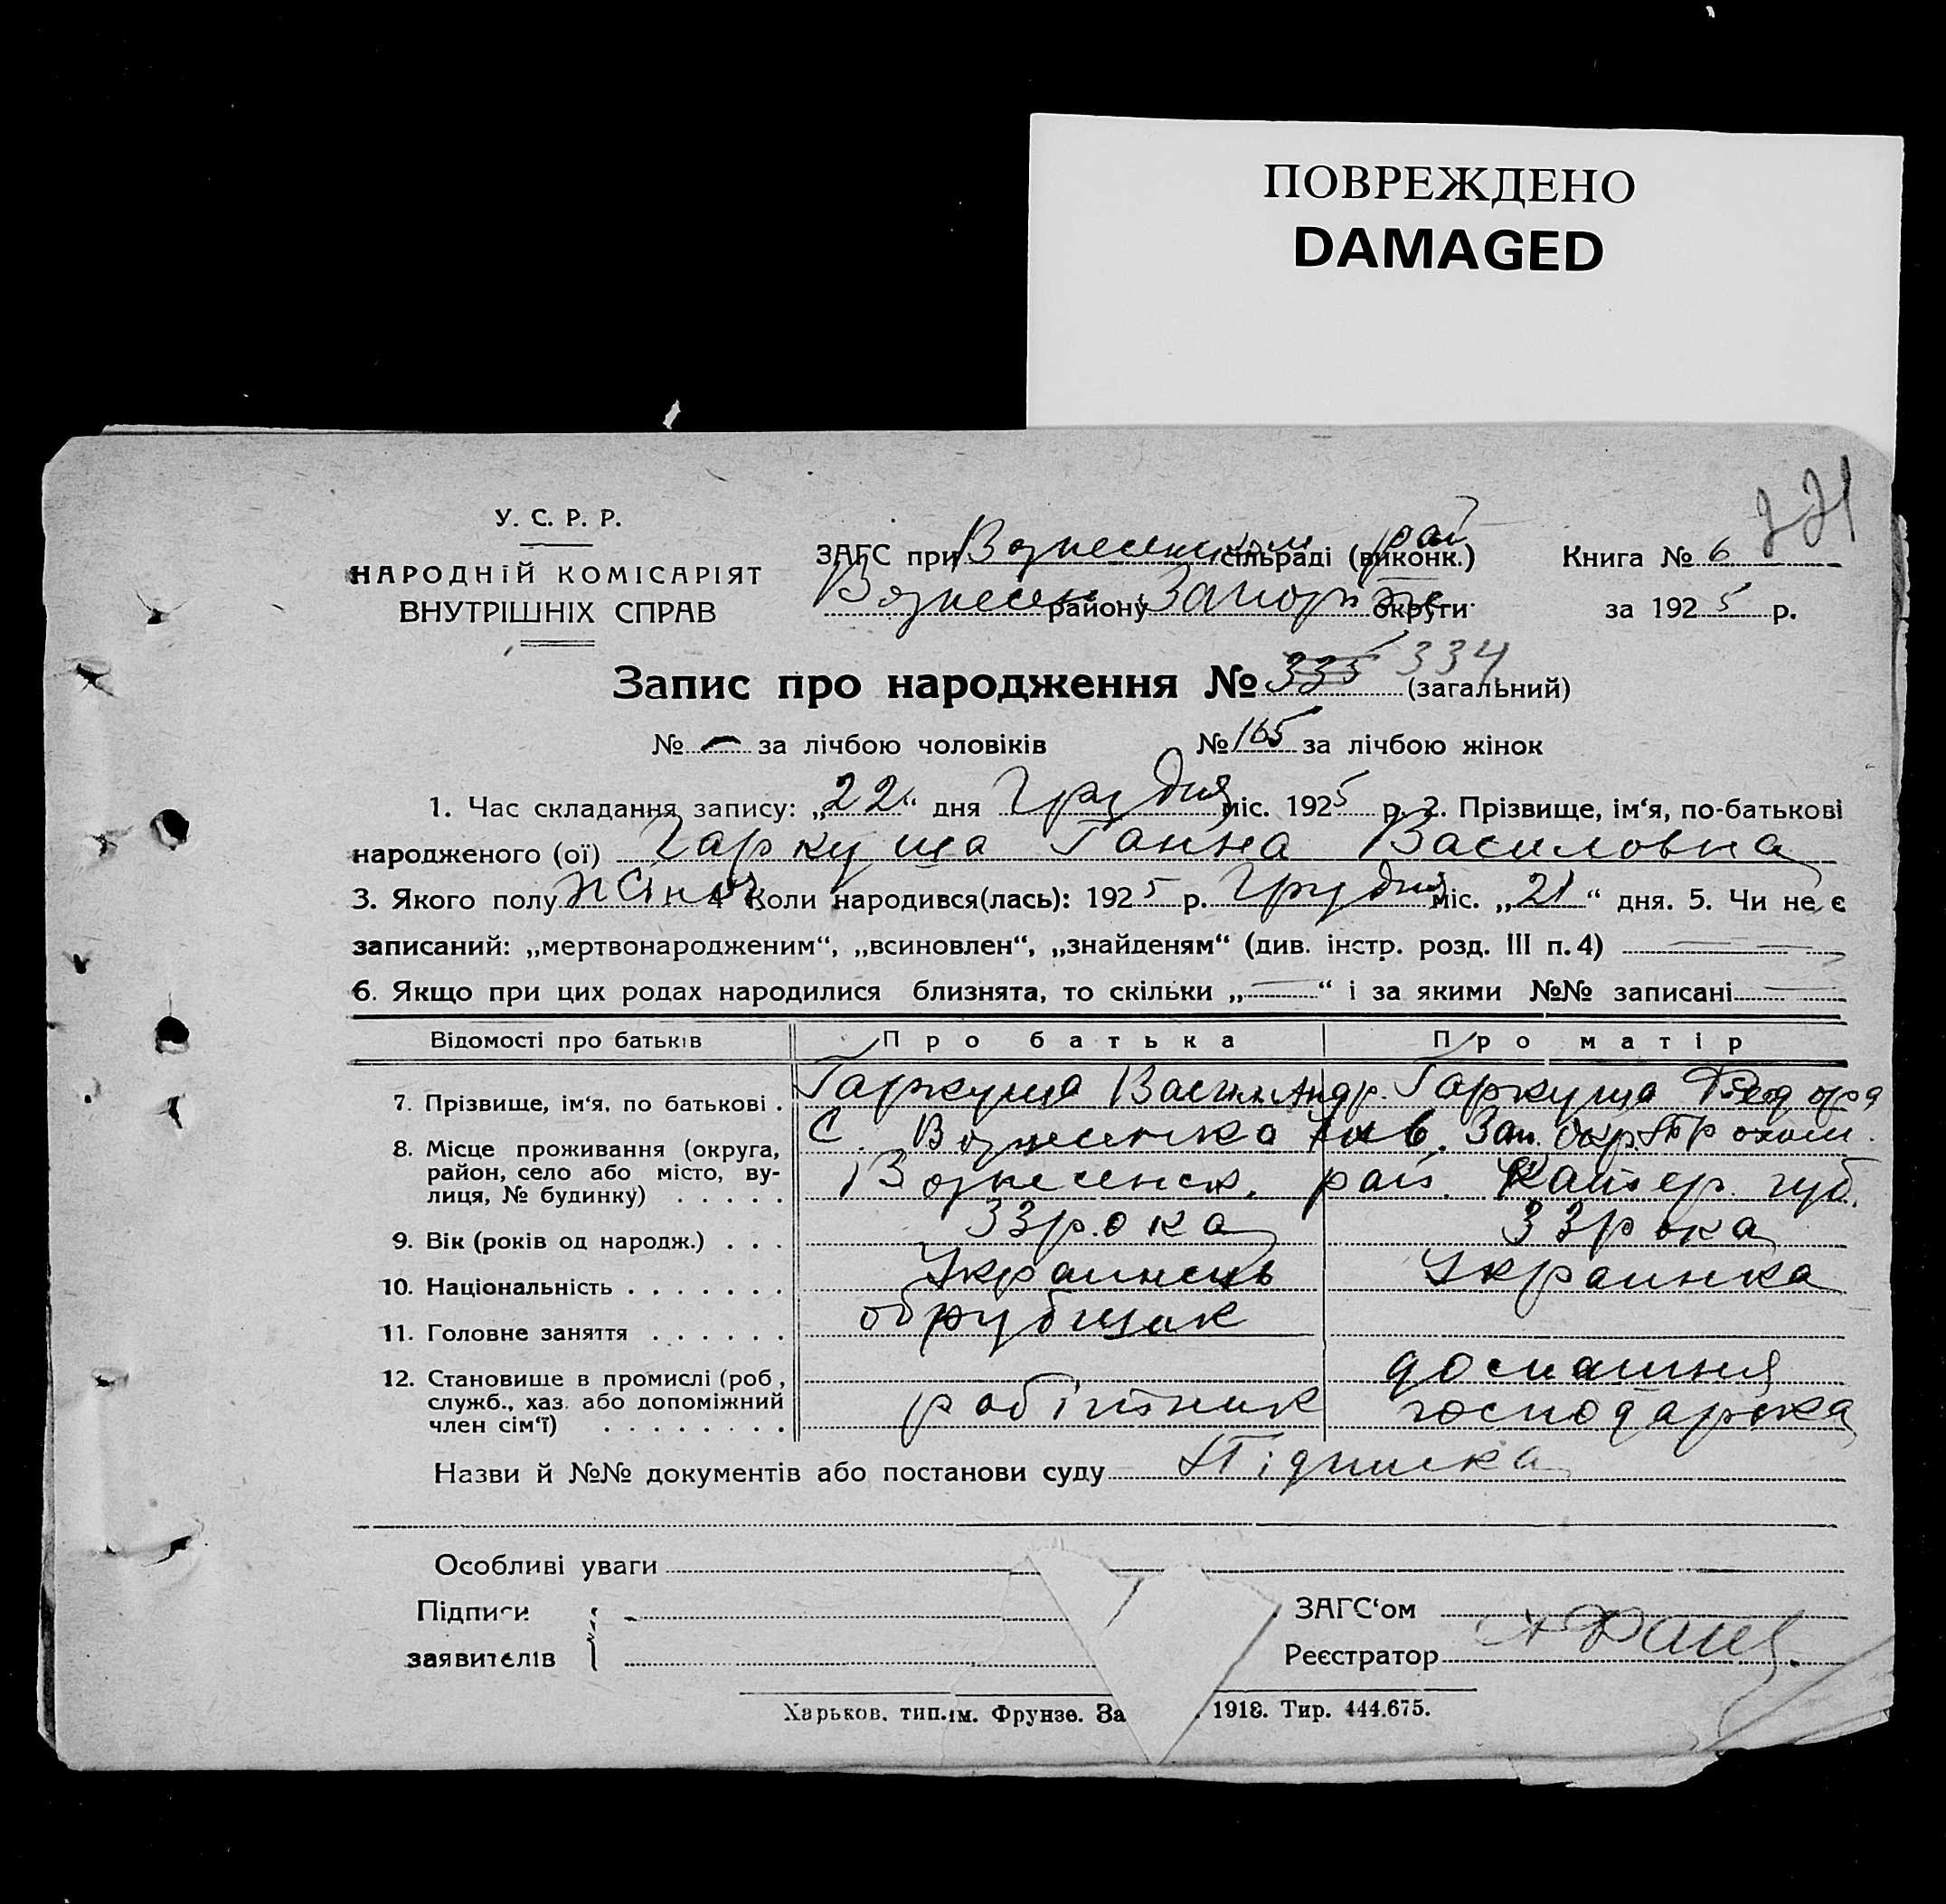 ПОВРЕЖДЕНО
DAMAGED
221
У. С. Р. Р.
НАРОДНІЙ КОМІСАРІЯТ
ВНУТРІШНІХ СПРАВ
ЗАГС при Вознесенском сільраді (виконк.) рай
Вознесен району Запоріж округи
Книга № 6
за 1925 р.
Запис про народження № 335 334 (загальний)
№ — за лічбою чоловіків № 165 за лічбою жінок
1. Час складання запису: „22“ дня Грудня міс. 1925 р. 2. Прізвище, ім‘я, по-батькові
народженого (ої) Гаркуша Ганна Василовна
3. Якого полу жіноч 4 Коли народився(лась): 1925 р. Грудня міс. „21“ дня. 5. Чи не є
записаний: „мертвонародженим“, „всиновлен“, „знайденям“ (див. інстр. розд. III п. 4) —
6. Якщо при цих родах народилися близнята, то скільки „—“ і за якими №№ записані —
Відомості про батьків Про батька Про матір
7. Прізвище, ім‘я, по батькові . Гаркуша Васил Андр. Гаркуша Федора
8. Місце проживання (округа, С. Вознесенка Зап. окр. Трохом.
район, село або місто, ву- Вознесенск. рай.
лиця, № будинку) . . . . . губ.
9. Вік (років од народж.) . . . 33 рока 33 рока
10. Національність . . . . . . . Украинець Украинка
11. Головне заняття . . . . . . обрубщик
12. Становище в промислі (роб., домашня
служб., хаз. або допоміжний робітник господарска
член сім‘ї) . . . . . . . .
Назви й №№ документів або постанови суду Підписка
Особливі уваги
Підписи ЗАГС‘ом
заявителів Реєстратор
Харьков. тип. ім. Фрунзе. За 1918. Тир. 444.675.